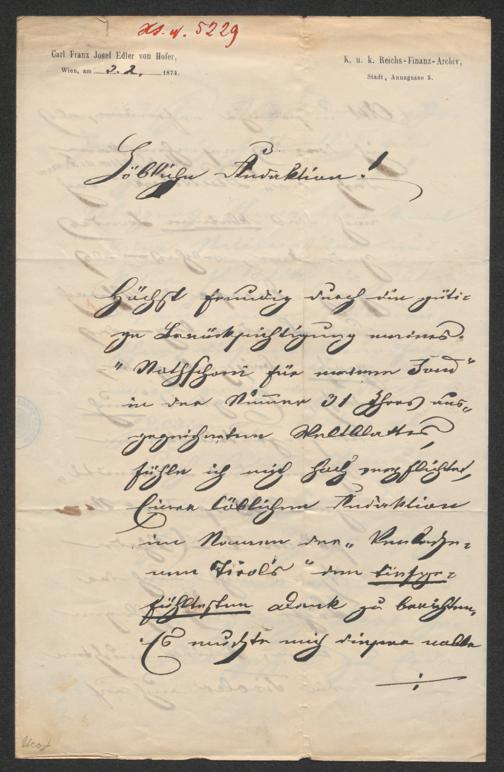 Hs. N. 5229
Carl Franz Josef Edler von Hofer,
Wien, am 3. 2. 1874.
K. u. k. Reichs-Finanz-Archiv,
Stadt, Annagasse 5.
Löbliche Redaktion!
Höchst freudig durch die güti-
ge Berücksichtigung meines
"Nothschrei für meinen "
in der Nummer 31 Ihres aus-
gezeichneten Weltblattes,
fühle ich mich hoch verpflichtet,
Einer löblichen Redaktion
im Namen der „
nen Tirol's" den tiefge-
fühltesten Dank zu
Es mich dieser